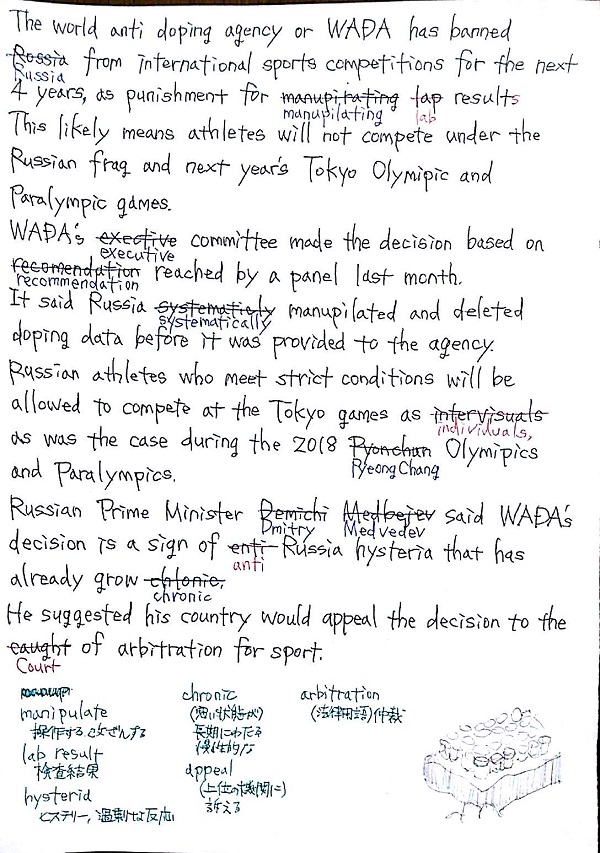 The world anti doping agency or WADA has banned
Rossia from international sports competitions for the next
Russia
4 years, as punishment for manupirating lap results
manupilating lab
This likely means athletes will not compete under the
Russian frag and next year's Tokyo Olymipic and
Paralympic games.
WADA's exective committee made the decision based on
executive
recomendation reached by a panel last month.
recommendation
It said Russia systematicly manupilated and deleted
systematically
doping data before it was provided to the agency.
Russian athletes who meet strict conditions will be
allowed to compete at the Tokyo games as intervisuals
individuals,
as was the case during the 2018 Pyonchun Olymipics
PyeongChang
and Paralympics.
Russian Prime Minister Demichi Medbejev said WADA's
Dmitry Medvedev
decision is a sign of enti Russia hysteria that has
anti
already grow chlonic,
chronic
He suggested his country would appeal the decision to the
caught of arbitration for sport.
Court
manipulate
操作する、改ざんする
lab result
検査結果
hysteria
ヒステリー、過剰な反応
chronic
(悪い状態が)
長期にわたる
慢性的な
appeal
(上位の機関に)
訴える
arbitration
(法律用語)仲裁